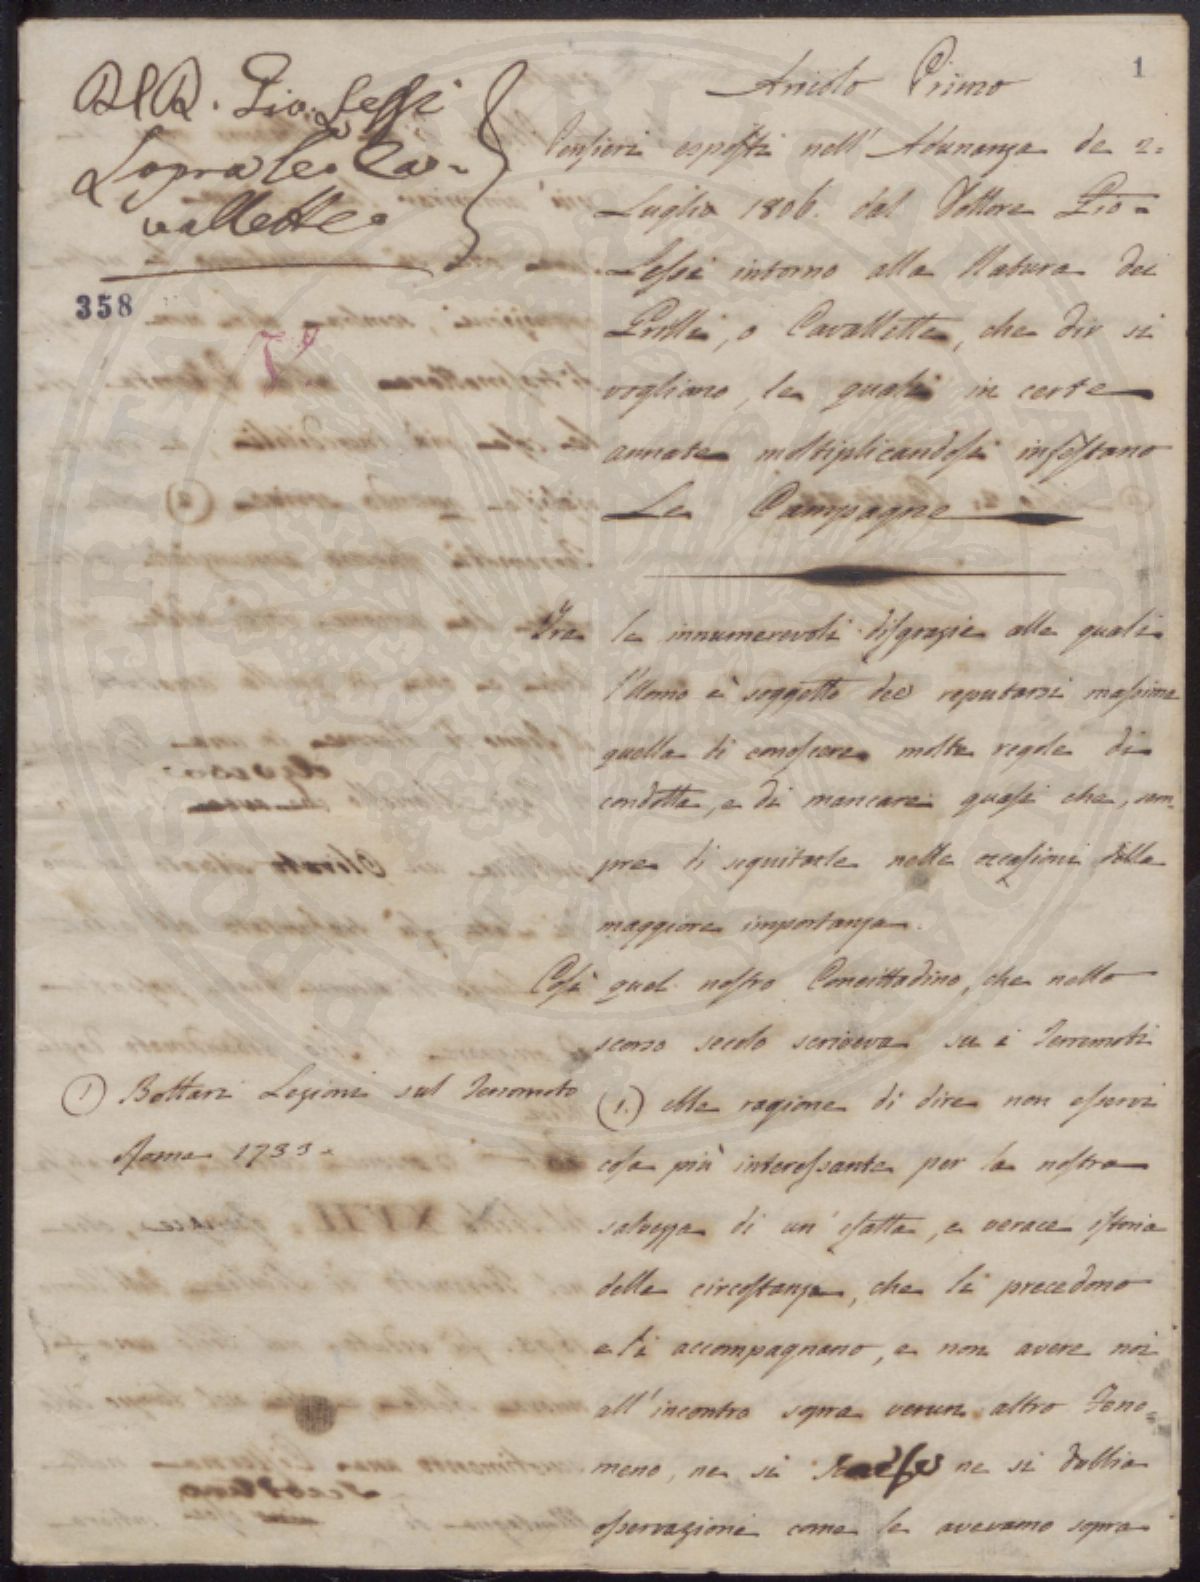 Del D. Pio Fessi
Sopra le Ca-
vallette
358
1
Articolo Primo
Pensieri esposti nell' Adunanza de 2.
Luglio 1806. dal Dottore Pio
intorno alla Natura dei
Grilli, o Cavallette, che dir si
vogliano, le quali in certe
annate moltiplicandosi infestano
Le Campagne
Tra le innumerevoli disgrazie alle quali
l'Uomo è soggetto dee reputarsi massima
quella di conoscere molte regole di
condotta, e di mancare quasi che, sem-
pre di seguitarle nelle occasioni della
maggiore importanza.
Così quel nostro Concittadino, che nello
scorso secolo scriveva su i Terremoti
(1.) ebbe ragione di dire non esservi
cosa più interessante per la nostra
salvezza di un' esatta, e verace istoria
delle circostanze, che li precedono
e li accompagnano, e non avere noi
all' incontro sopra verun altro Feno-
meno, ne si ne si dubbie
osservazioni come le avevamo sopra
(1) Bottari Lezioni sul Terremoto
Roma 1733.